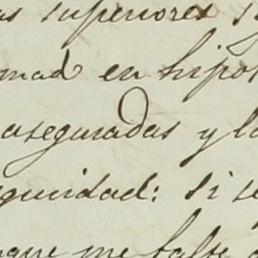 as superiores s
mad en hipo
aseguradas y lo
guridad: si se
que me falte